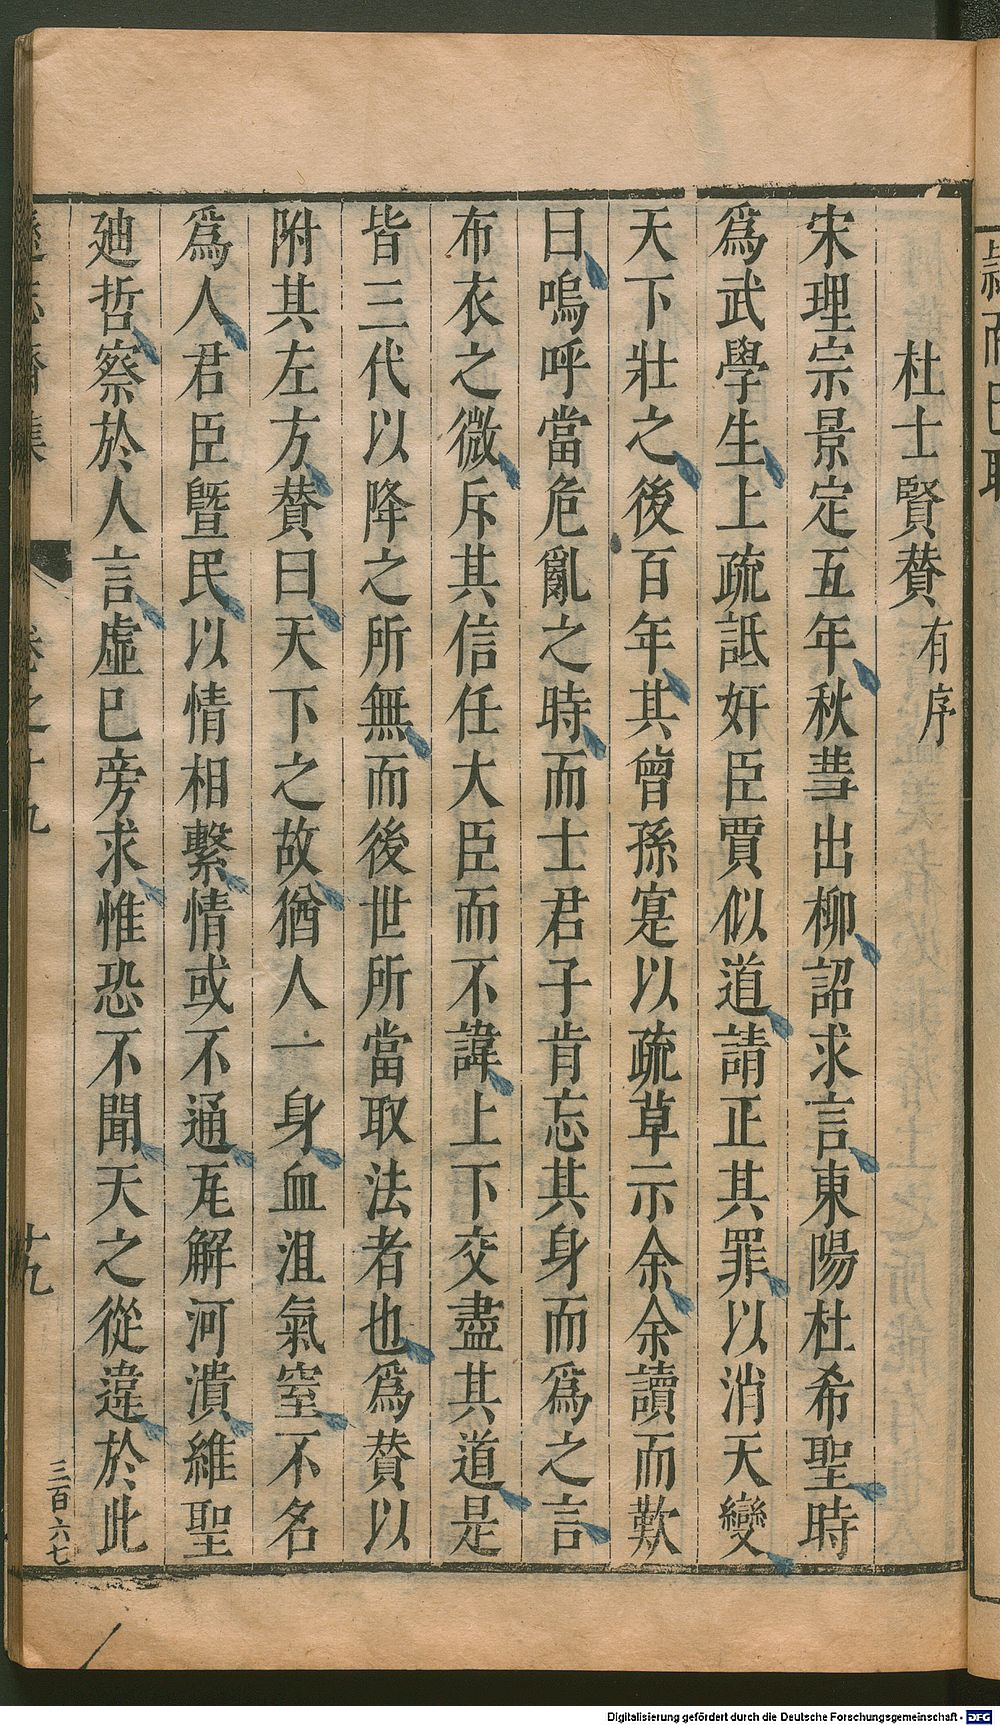 杜士賢賛有序
宋理宗景定五年秋彗出柳詔求言東陽杜希聖時
爲武學生上疏詆奸臣賈似道請正其罪以消天變
天下壯之後百年其曾孫寔以疏草示余余讀而歎
曰嗚呼當危亂之時而士君子肯忘其身而爲之言
布衣之微斥其信任大臣而不諱上下交盡其道是
皆三代以降之所無而後世所當取法者也爲賛以
附其左方賛曰天下之故猶人一身血沮氣窒不名
爲人君臣曁民以情相繫情或不通瓦解河潰維聖
廸哲察於人言虛已旁求惟恐不聞天之從違於此
遜志齋集 卷之十九 十九 三百六七
Digitalisierung gefördert durch die Deutsche Forschungsgemeinschaft - DFG